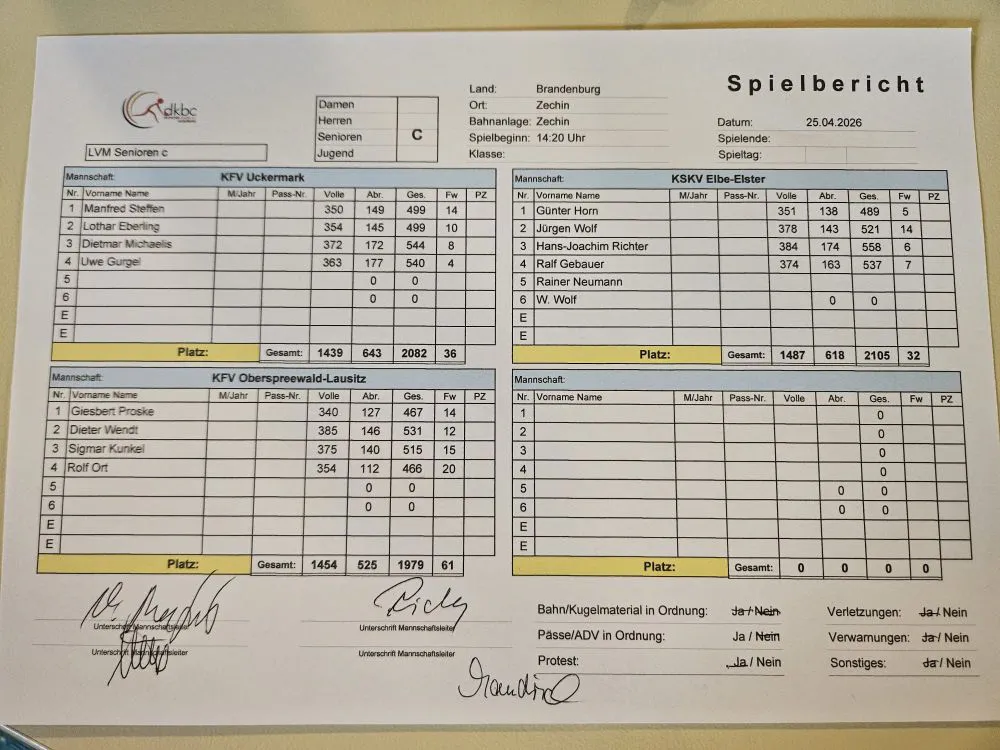 Spielbericht
dkbc
Damen
Herren
Senioren C
Jugend
LVM Senioren c
Land: Brandenburg
Ort: Zechin
Bahnanlage: Zechin
Spielbeginn: 14:20 Uhr
Klasse:
Datum: 25.04.2026
Spielende:
Spieltag:
Mannschaft: KFV Uckermark
Nr. Vorname Name M/Jahr Pass-Nr. Volle Abr. Ges. Fw PZ
1 Manfred Steffen 350 149 499 14
2 Lothar Eberling 354 145 499 10
3 Dietmar Michaelis 372 172 544 8
4 Uwe Gurgel 363 177 540 4
5 0 0
6 0 0
E
E
Platz: Gesamt: 1439 643 2082 36
Mannschaft: KSKV Elbe-Elster
Nr. Vorname Name M/Jahr Pass-Nr. Volle Abr. Ges. Fw PZ
1 Günter Horn 351 138 489 5
2 Jürgen Wolf 378 143 521 14
3 Hans-Joachim Richter 384 174 558 6
4 Ralf Gebauer 374 163 537 7
5 Rainer Neumann
6 W. Wolf 0 0
E
E
Platz: Gesamt: 1487 618 2105 32
Mannschaft: KFV Oberspreewald-Lausitz
Nr. Vorname Name M/Jahr Pass-Nr. Volle Abr. Ges. Fw PZ
1 Giesbert Proske 340 127 467 14
2 Dieter Wendt 385 146 531 12
3 Sigmar Kunkel 375 140 515 15
4 Rolf Ort 354 112 466 20
5 0 0
6 0 0
E
E
Platz: Gesamt: 1454 525 1979 61
Mannschaft:
Nr. Vorname Name M/Jahr Pass-Nr. Volle Abr. Ges. Fw PZ
1 0
2 0
3 0
4 0
5 0 0
6 0 0
E
E
Platz: Gesamt: 0 0 0 0
Unterschrift Mannschaftsleiter
Unterschrift Mannschaftsleiter
Unterschrift Mannschaftsleiter
Unterschrift Mannschaftsleiter
Bahn/Kugelmaterial in Ordnung: Ja / Nein
Pässe/ADV in Ordnung: Ja / Nein
Protest: Ja / Nein
Verletzungen: Ja / Nein
Verwarnungen: Ja / Nein
Sonstiges: Ja / Nein